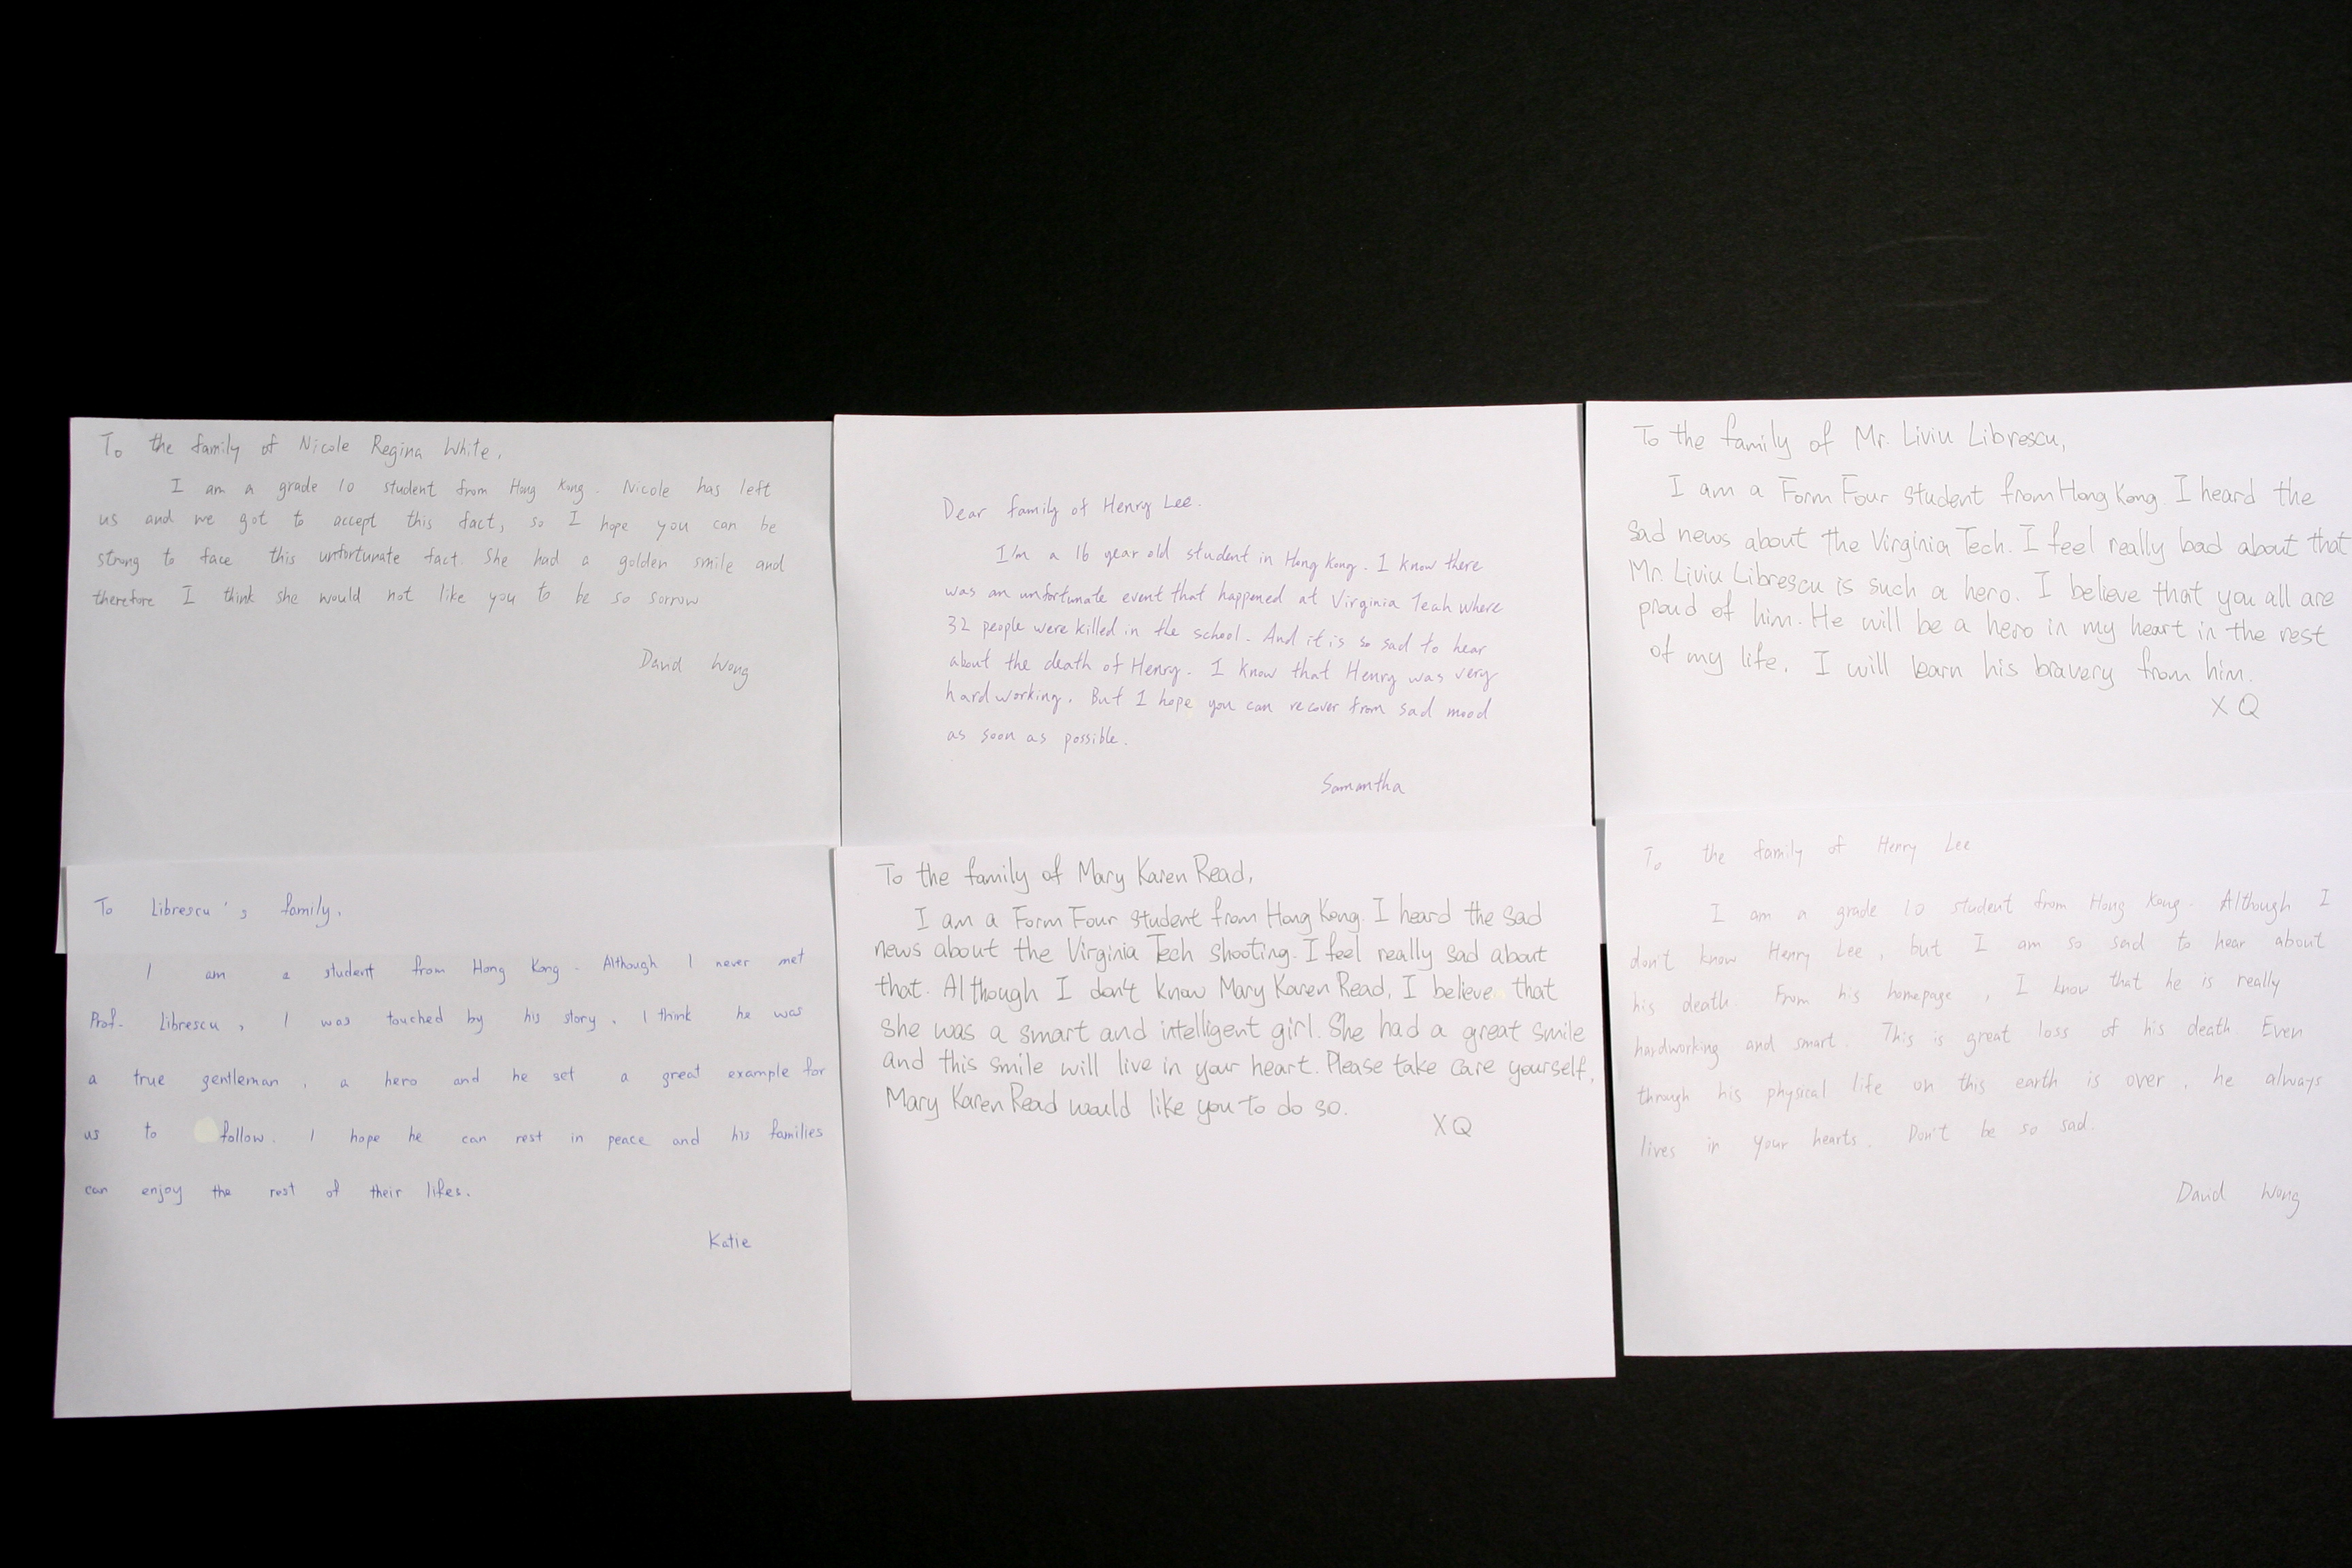 To the family of Nicole Regina White,
I am a grade 10 student from Hong Kong. Nicole has left
us and we got to accept this fact, so I hope you can be
strong to face this unfortunate fact. She had a golden smile and
therefore I think she would not like you to be so sorrow
David Wong
Dear family of Henry Lee.
I'm a 16 year old student in Hong Kong. I know there
was an unfortunate event that happened at Virginia Teah where
32 people were killed in the school. And it is so sad to hear
about the death of Henry. I know that Henry was very
hardworking. But I hope you can recover from sad mood
as soon as possible.
Samantha
To the family of Mr. Liviu Librescu,
I am a Form Four student from Hong Kong. I heard the
sad news about the Virginia Tech. I feel really bad about that
Mr. Liviu Librescu is such a hero. I believe that you all are
proud of him. He will be a hero in my heart in the rest
of my life. I will learn his bravery from him.
X Q
To Librescu's family,
I am a student from Hong Kong. Although I never met
Prof. Librescu, I was touched by his story. I think he was
a true gentleman, a hero and he set a great example for
us to follow. I hope he can rest in peace and his families
can enjoy the rest of their lifes.
Katie
To the family of Mary Karen Read,
I am a Form Four student from Hong Kong. I heard the sad
news about the Virginia Tech shooting. I feel really sad about
that. Although I don't know Mary Karen Read, I believe that
she was a smart and intelligent girl. She had a great smile
and this smile will live in your heart. Please take care yourself,
Mary Karen Read would like you to do so.
X Q
To the family of Henry Lee
I am a grade 10 student from Hong Kong. Although I
don't know Henry Lee, but I am so sad to hear about
his death. From his homepage, I know that he is really
hardworking and smart. This is great loss of his death. Even
through his physical life on this earth is over, he always
lives in your hearts. Don't be so sad.
David Wong